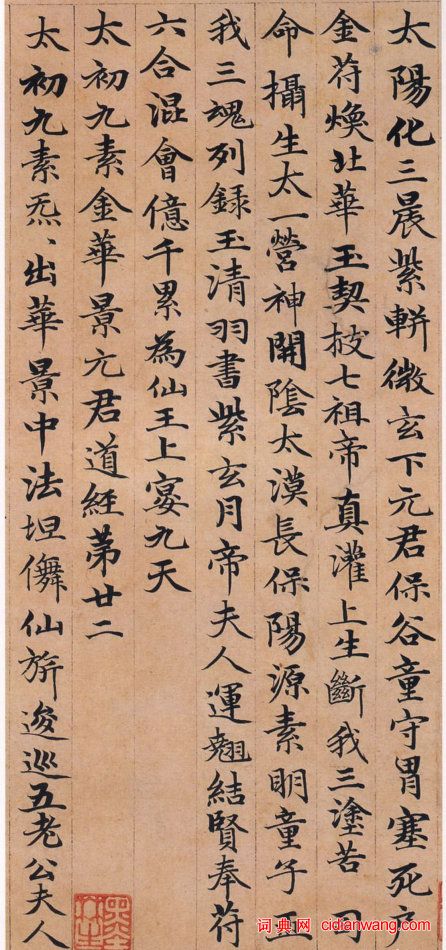 太陽化三晨紫軿徼玄下元君保谷童守胃塞死戶
金苻煥北華玉契披七祖帝真灌上生斷我三塗苦日
命攝生太一營神開陰太漠長保陽源素明童子
我三魂列錄玉清羽書紫玄月帝夫人運翹結賢奉苻
六合混會億千累為仙王上宴九天
太初九素金華景元君道經苐廿二
太初九素炁、出華景中法坦儛仙旂逡巡五老公夫人
词典网 cidianwang.com